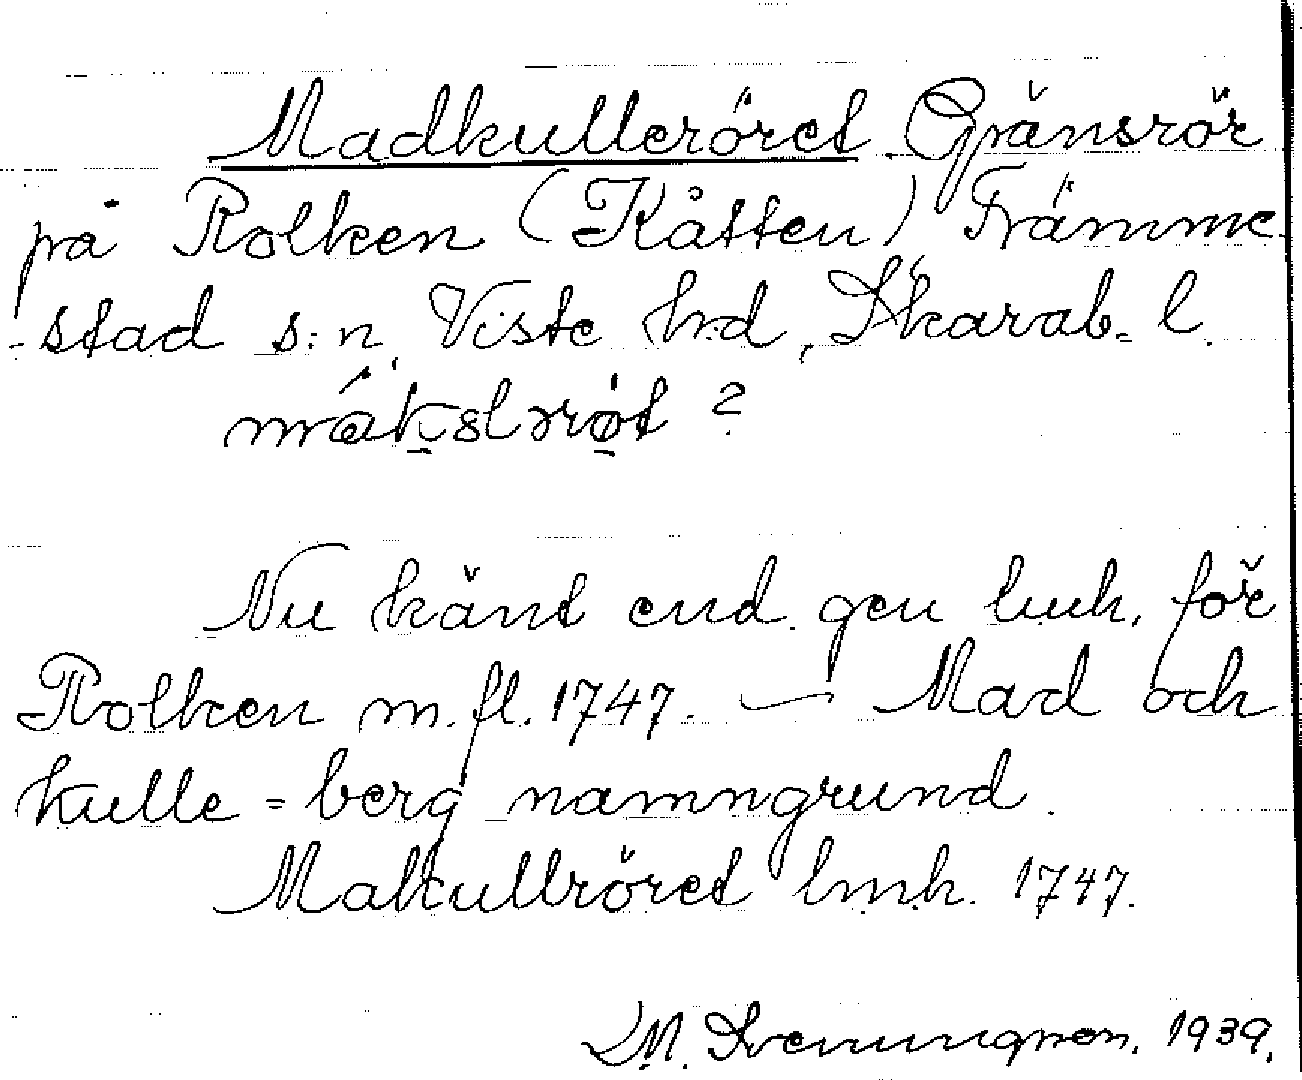 Madkulleröret Gränsrör
på Rolken (Kåtten) Främme-
stad s:n, Viste hrd, Skarab. l.
?
Nu känt end. gen lmh. för
Rolken m. fl. 1747. — Mad och
kulle = berg namngrund.
Malkullröret lmh. 1747.
M. 1939.